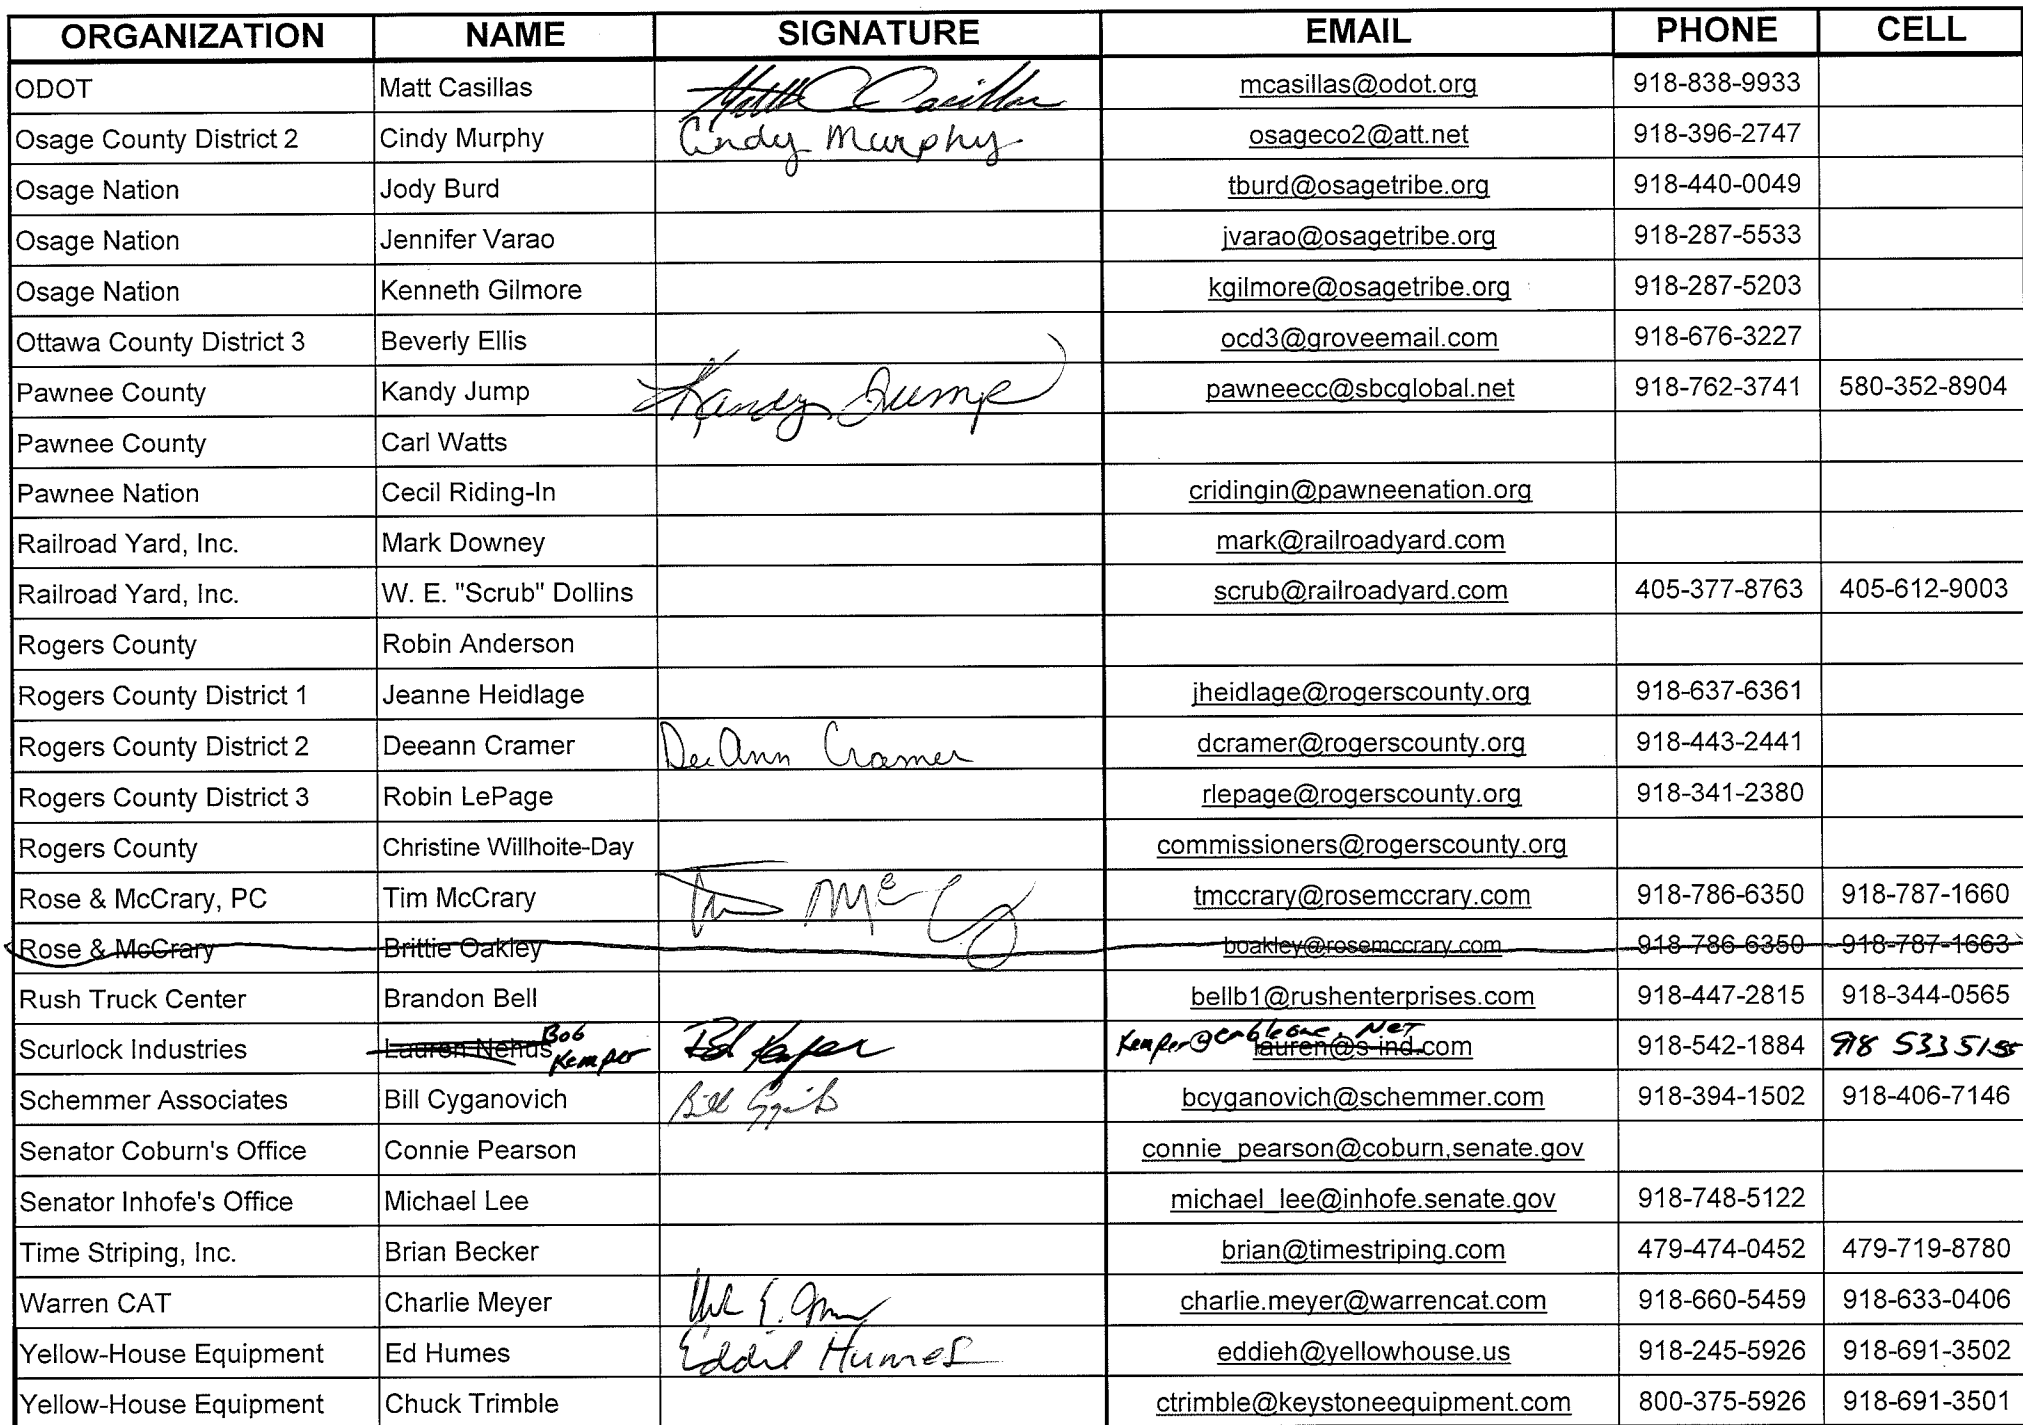 ORGANIZATION NAME SIGNATURE EMAIL PHONE CELL
ODOT Matt Casillas Matt C Casillas mcasillas@odot.org 918-838-9933
Osage County District 2 Cindy Murphy Cindy Murphy osageco2@att.net 918-396-2747
Osage Nation Jody Burd tburd@osagetribe.org 918-440-0049
Osage Nation Jennifer Varao jvarao@osagetribe.org 918-287-5533
Osage Nation Kenneth Gilmore kgilmore@osagetribe.org 918-287-5203
Ottawa County District 3 Beverly Ellis ocd3@groveemail.com 918-676-3227
Pawnee County Kandy Jump Kandy Jump pawneecc@sbcglobal.net 918-762-3741 580-352-8904
Pawnee County Carl Watts
Pawnee Nation Cecil Riding-In cridingin@pawneenation.org
Railroad Yard, Inc. Mark Downey mark@railroadyard.com
Railroad Yard, Inc. W. E. "Scrub" Dollins scrub@railroadyard.com 405-377-8763 405-612-9003
Rogers County Robin Anderson
Rogers County District 1 Jeanne Heidlage jheidlage@rogerscounty.org 918-637-6361
Rogers County District 2 Deeann Cramer DeeAnn Cramer dcramer@rogerscounty.org 918-443-2441
Rogers County District 3 Robin LePage rlepage@rogerscounty.org 918-341-2380
Rogers County Christine Willhoite-Day commissioners@rogerscounty.org
Rose & McCrary, PC Tim McCrary tmccrary@rosemccrary.com 918-786-6350 918-787-1660
Rose & McCrary Brittie Oakley boakley@rosemccrary.com 918-786-6350 918-787-1663
Rush Truck Center Brandon Bell bellb1@rushenterprises.com 918-447-2815 918-344-0565
Scurlock Industries Lauren Nehus Bob Kemper Bob Kemper Kemper@cableone.NET lauren@s-ind.com 918-542-1884 918 533 5155
Schemmer Associates Bill Cyganovich Bill bcyganovich@schemmer.com 918-394-1502 918-406-7146
Senator Coburn's Office Connie Pearson connie_pearson@coburn,senate.gov
Senator Inhofe's Office Michael Lee michael_lee@inhofe.senate.gov 918-748-5122
Time Striping, Inc. Brian Becker brian@timestriping.com 479-474-0452 479-719-8780
Warren CAT Charlie Meyer charlie.meyer@warrencat.com 918-660-5459 918-633-0406
Yellow-House Equipment Ed Humes Eddie Humes eddieh@yellowhouse.us 918-245-5926 918-691-3502
Yellow-House Equipment Chuck Trimble ctrimble@keystoneequipment.com 800-375-5926 918-691-3501